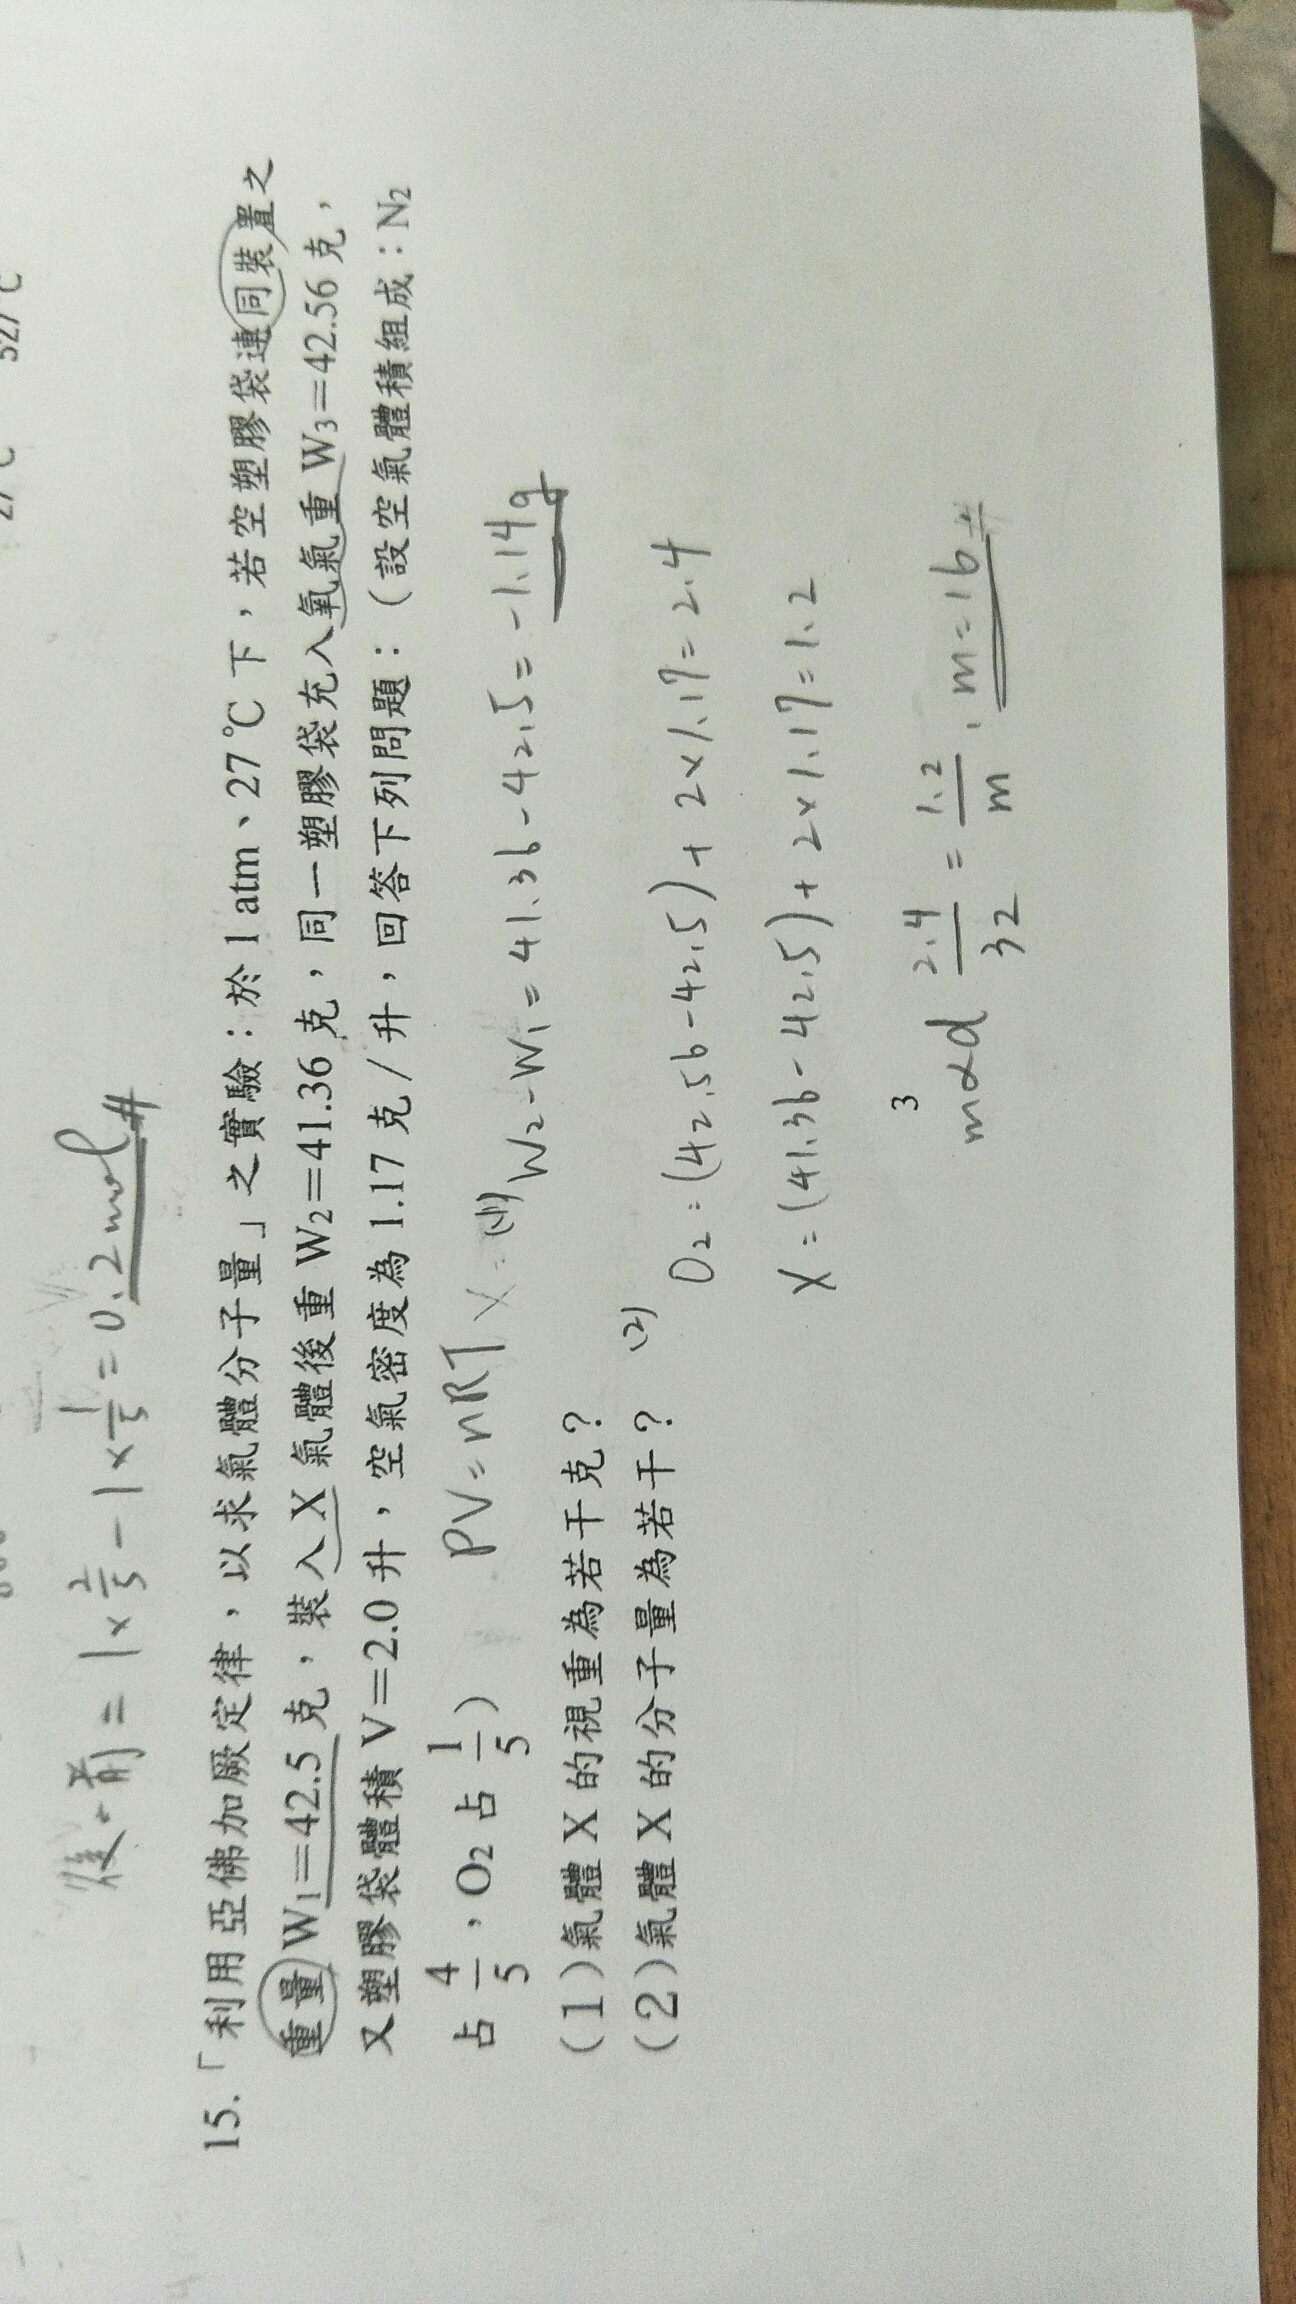 27℃ 527℃
後-前=1×2/5-1×1/5=0.2mol#
15.「利用亞佛加厥定律，以求氣體分子量」之實驗：於1 atm、27℃下，若空塑膠袋連同裝置之
重量W₁=42.5克，裝入X氣體後重W₂=41.36克，同一塑膠袋充入氧氣重W₃=42.56克，
又塑膠袋體積V=2.0升，空氣密度為1.17克/升，回答下列問題：（設空氣體積組成：N₂
占4/5，O₂占1/5）
PV=nRT X
(1)氣體X的視重為若干克？
(2)氣體X的分子量為若干？
(1) W₂-W₁=41.36-42.5=-1.14g
(2)
O₂=(42.56-42.5)+2×1.17=2.4
X=(41.36-42.5)+2×1.17=1.2
3
m∝d 2.4/32=1.2/m, m=16#